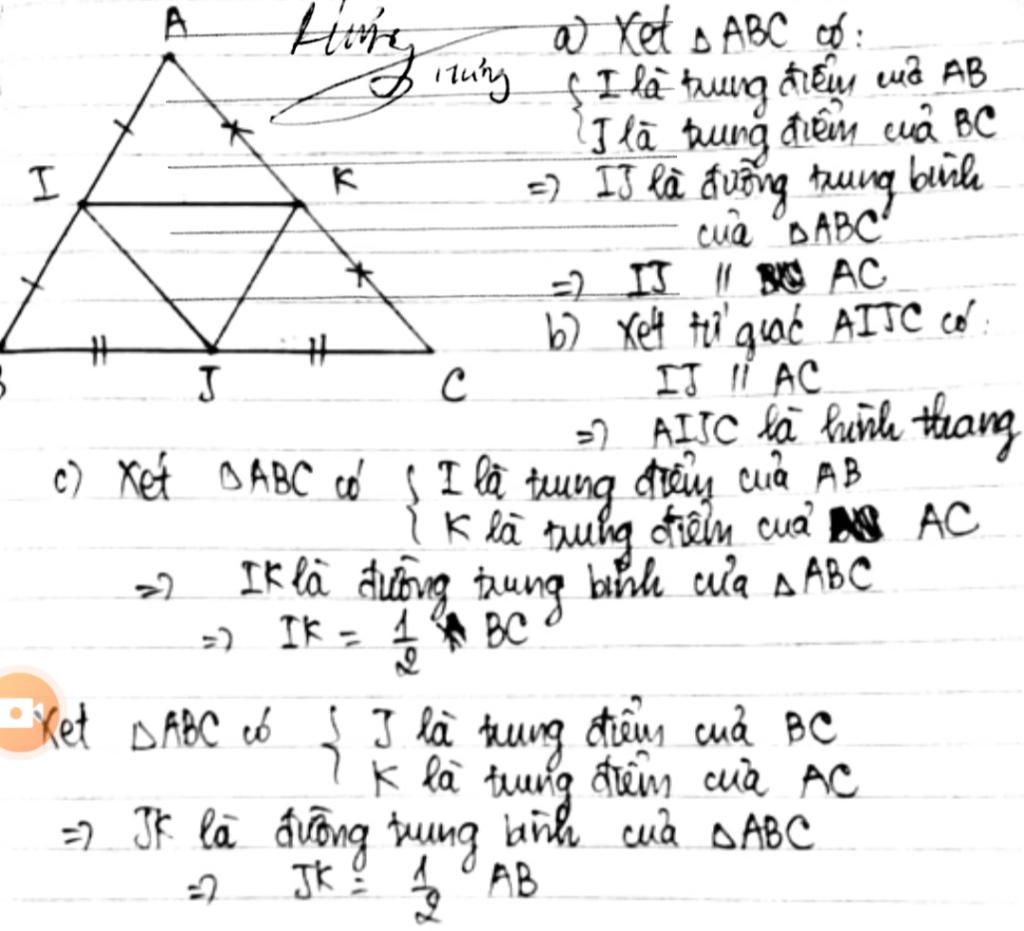 A
I
K
B
J
C
Hứng
a) Xét △ABC có:
{ I là trung điểm của AB
J là trung điểm của BC
=> IJ là đường trung bình
của △ABC
=> IJ // AC
b) Xét tứ giác AIJC có:
IJ // AC
=> AIJC là hình thang
c) Xét △ABC có { I là trung điểm của AB
K là trung điểm của AC
=> IK là đường trung bình của △ABC
=> IK = 1/2 BC
Xét △ABC có { J là trung điểm của BC
K là trung điểm của AC
=> JK là đường trung bình của △ABC
=> JK = 1/2 AB